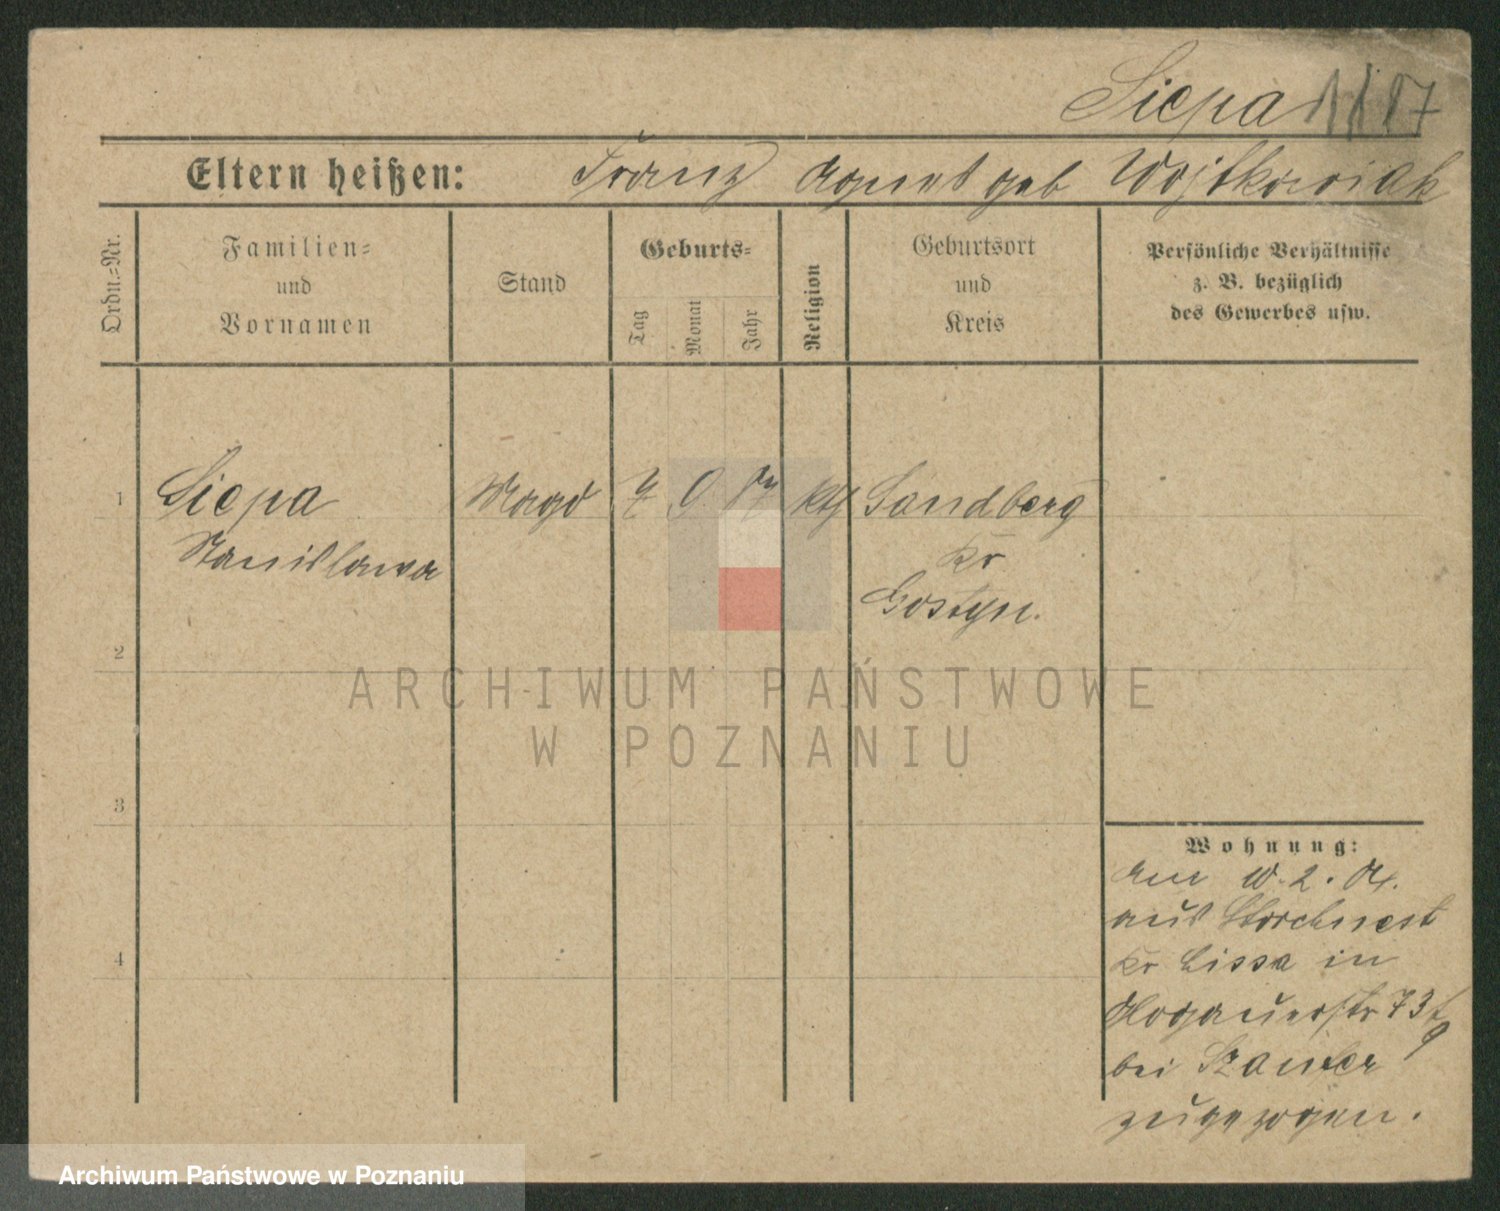 Siepa 1887
Eltern heißen: Franz Agnes geb Wojtkowiak
Ordn.=Nr.
Familien=
und
Vornamen
Stand
Geburts=
Tag
Monat
Jahr
Religion
Geburtsort
und
Kreis
Persönliche Verhältnisse
z. B. bezüglich
des Gewerbes usw.
1 Siepa Magd 7 9 87 kth Sandberg
Stanislawa
Kr
Gostyn.
2
3
4
Wohnung:
am 10. 2.
aus Storchnest
Kr Lissa in
Glogauerstr 73
bei
zugezogen.
ARCHIWUM PAŃSTWOWE
W POZNANIU
Archiwum Państwowe w Poznaniu